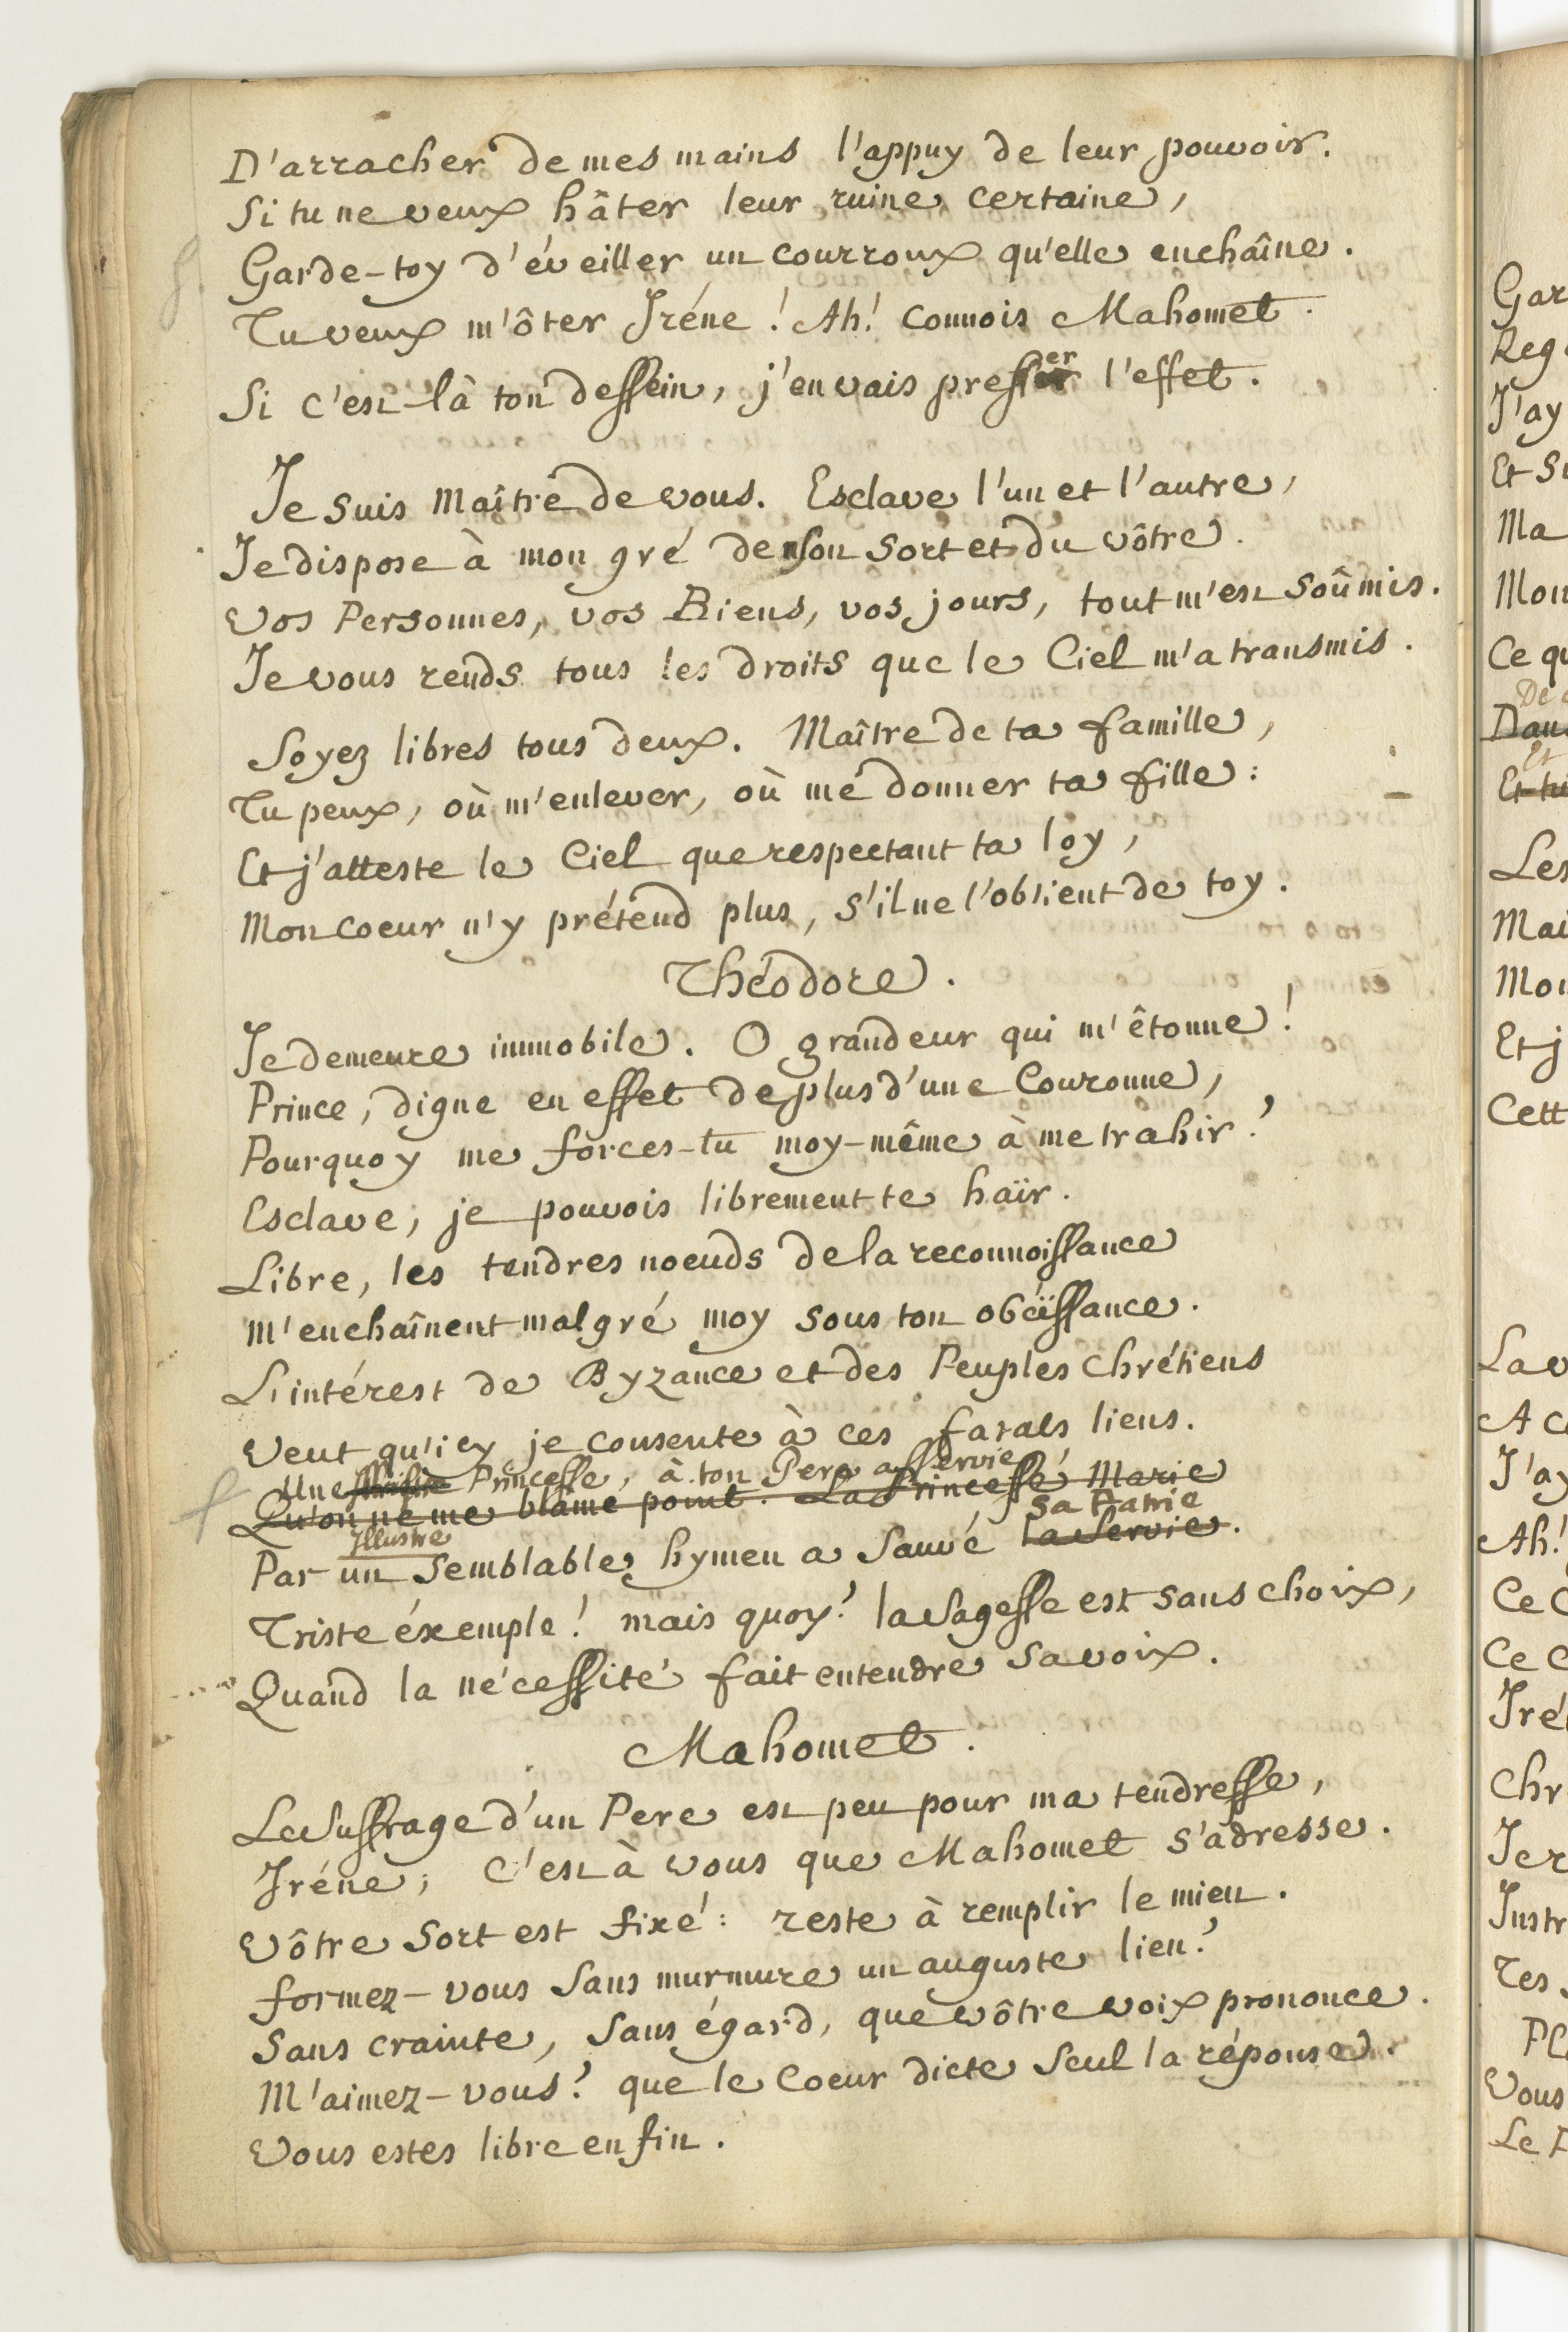 D'arracher de mes mains l'appuy de leur pouvoir.
Si tu ne veux hâter leur ruine certaine,
Garde-toy d'éveiller un courroux qu'elle enchaîne.
Tu veux m'ôter Iréne ! Ah! connois Mahomet.
Si c'est-là ton dessein, j'en vais presser l'effet.
Je suis Maître de vous. Esclave l'un et l'autre,
Je dispose à mon gré de son sort et du vôtre.
Vos Personnes, vos Biens, vos jours, tout m'est soûmis.
Je vous rends tous les droits que le Ciel m'a transmis.
Soyez libres tous deux. Maître de ta famille,
Tu peux, où m'enlever, où me donner ta fille:
Et j'atteste le Ciel que respectant ta loy,
Mon coeur n'y prétend plus, s'il ne l'obtient de toy.
Théodore.
Je demeure immobile. O grandeur qui m'êtonne!
Prince, digne en effet de plus d'une Couronne,
Pourquoy me forces-tu moy-même à me trahir?
Esclave, je pouvois librement te haïr.
Libre, les tendres noeuds de la reconnoissance
M'enchaînent malgré moy sous ton obéïssance.
L'intérest de Byzance et des Peuples Chrétiens
Veut qu'icy je consente à ces fatals liens.
Une Princesse, à ton Pere asservie
Qu'on ne me blâme point. La Princesse Marie
Illustre sa Patrie
Par un semblable hymen a sauvé la Servie.
Triste éxemple! mais quoy? la sagesse est sans choix,
Quand la nécessité fait entendre sa voix.
Mahomet.
Le suffrage d'un Pere est peu pour ma tendresse,
Iréne; C'est à vous que Mahomet s'adresse.
Vôtre sort est fixé: reste à remplir le mien.
formez-vous sans murmure un auguste lien?
Sans crainte, sans égard, que vôtre voix prononce.
M'aimez-vous? que le Coeur dicte seul la réponse.
Vous estes libre enfin.
Gar
Reg
J'ay
Et s
Ma
Mon
Ce qu
De
Dan
Et
Et tu
Les
Mai
Moi
Et j
Cett
La v
A c
J'ay
Ah!
Ce C
Ce c
Iré
Chr
Je r
Justr
Tes
Pl
Vous
Le P